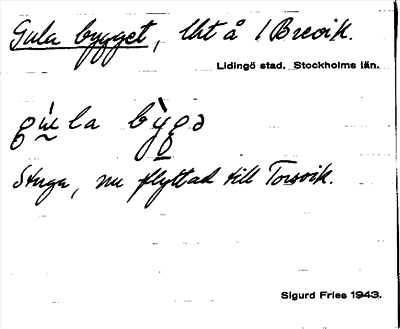 Gula bygget, lht å 1 Brevik.
Lidingö stad. Stockholms län.
gu̇la bỳgə
Stuga, nu flyttad till Torsvik.
Sigurd Fries 1943.